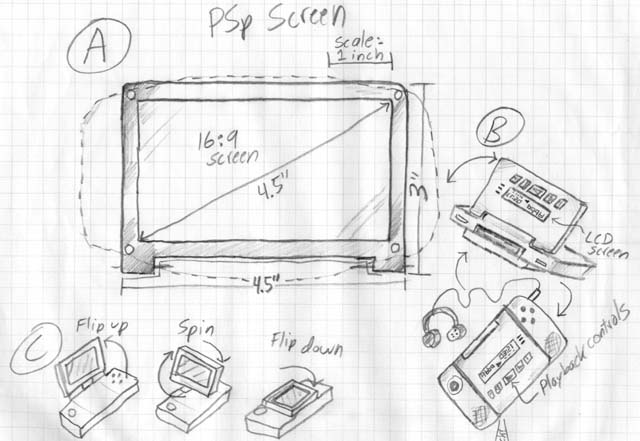 PSP Screen
A
scale:
1 inch
16:9
screen
4.5"
3"
4.5"
B
LCD
screen
C
Flip up
Spin
Flip down
Playback controls